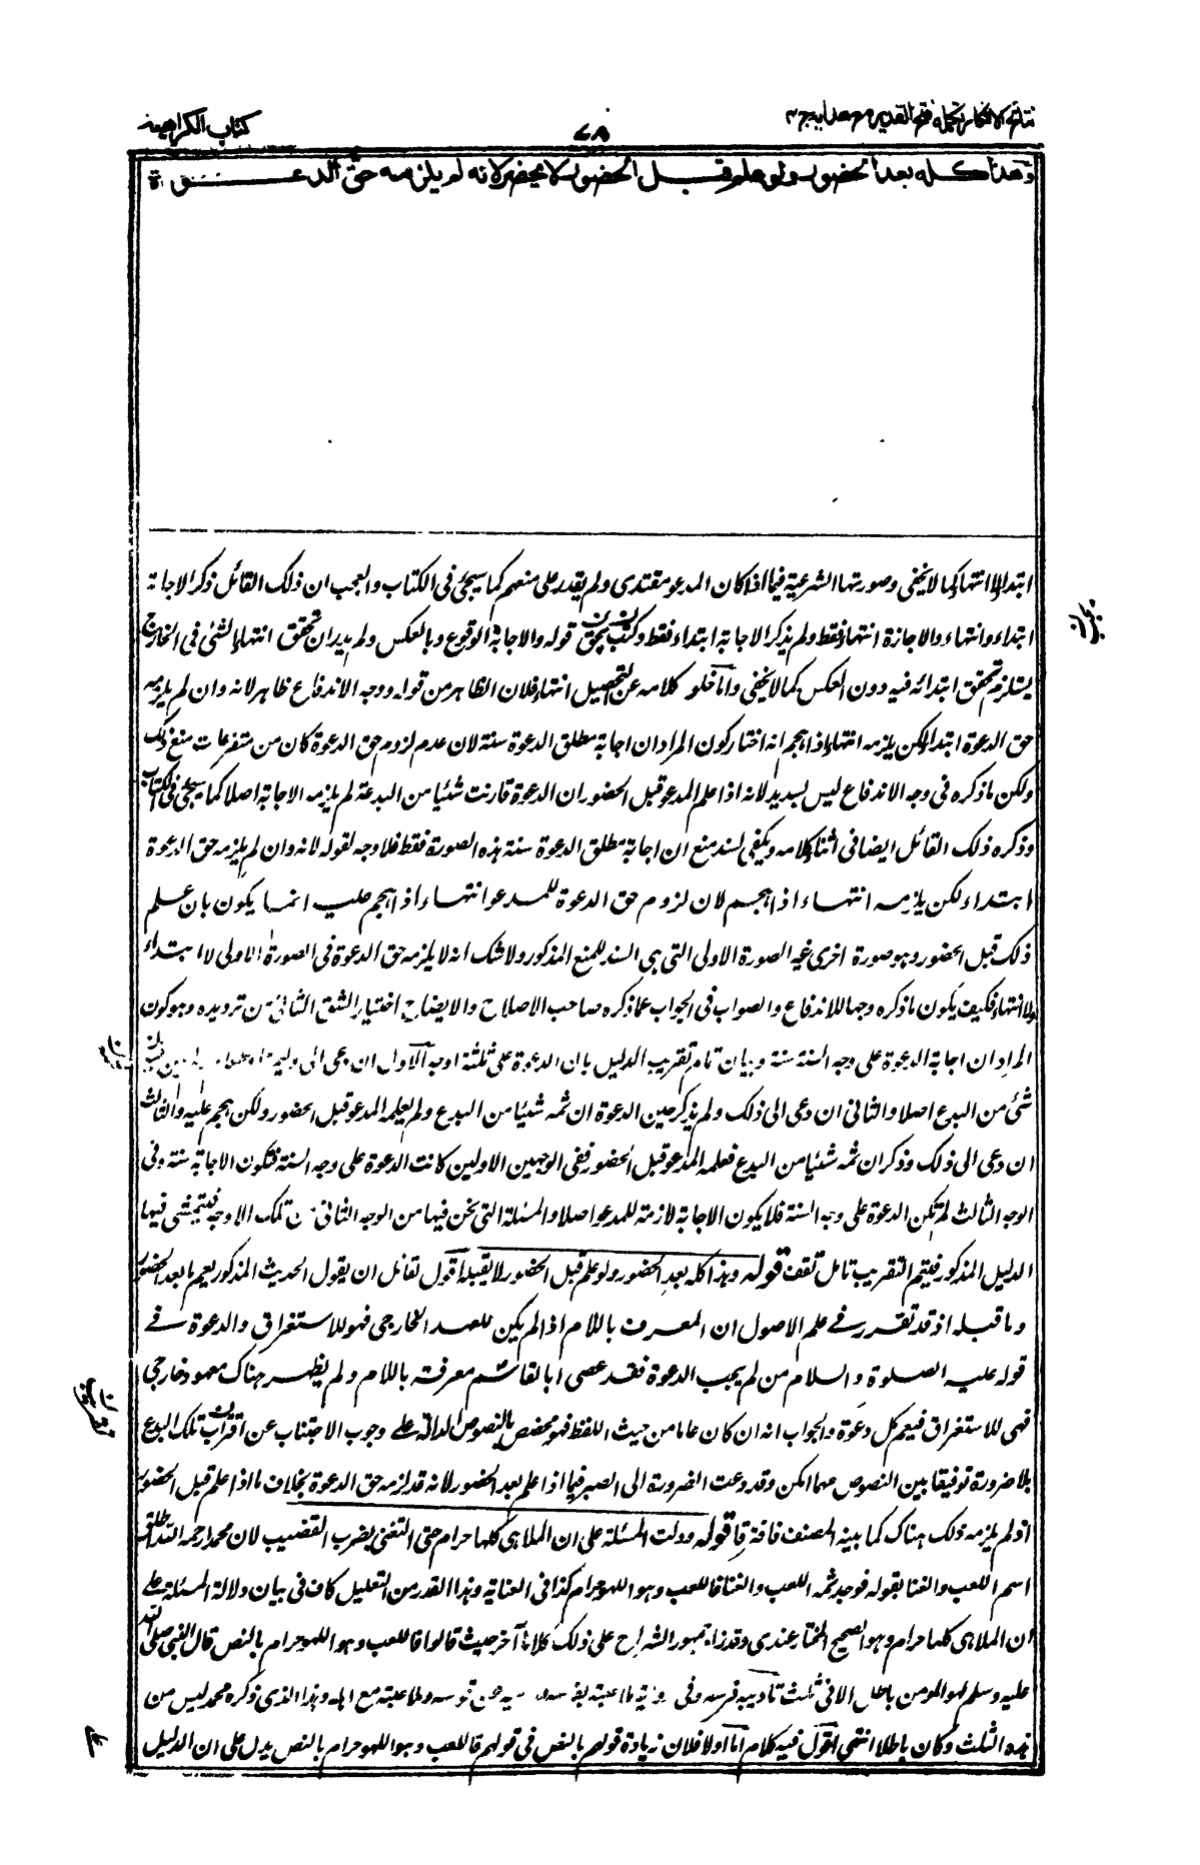 نتائج الافكار تكملة فتح القدير مع هداية ج ٤
٧٨
كتاب الكراهية
وهذا كله بعد الحضور ولو علم قبل الحضور لا يحضر لانه لم يلزمه حق الدعوة
ابتداء لا انتهاء كما لا يخفى وصورتها الشرعية فيما اذا كان المدعو مقتدى ولم يقدر على منعهم كما سيجئ فى الكتاب والعجب ان ذلك القائل ذكر الاجابة
ابتداء وانتهاء والاجازة انتهاء فقط ولم يذكر الاجابة ابتداء فقط وكتب قوله والاجابة الوقوع وبالعكس ولم يدر ان تحقق انتهاء الشئ فى الخارج
يستلزم تحقق ابتدائه فيه دون العكس كما لا يخفى واما خلو كلامه عن التحصيل انتهاء فلان الظاهر من قوله ووجه الاندفاع ظاهر لانه وان لم يلزمه
حق الدعوة ابتداء لكن يلزمه انتهاء اذا هجم انه اختار كون المراد ان اجابة مطلق الدعوة سنة لان عدم لزوم حق الدعوة كان من متفرعات منع ذلك
ولكن ما ذكره فى وجه الاندفاع ليس بسديد لانه اذا علم المدعو قبل الحضور ان الدعوة قارنت شئيا من البدعة لم يلزمه الاجابة اصلا كما سيجئ فى الكتاب
وذكره ذلك القائل ايضا فى اثناء كلامه ويكفى لسند منع ان اجابة مطلق الدعوة سنة هذه الصورة فقط فلا وجه لقوله لانه وان لم يلزمه حق الدعوة
ابتداء لكن يلزمه انتهاء اذا هجم لان لزوم حق الدعوة للمدعو انتهاء اذا هجم عليه انما يكون بان علم
ذلك قبل الحضور وهو صورة اخرى غير الصورة الاولى التى هى السند للمنع المذكور ولا شك انه لا يلزمه حق الدعوة فى الصورة الاولى لا ابتداء
ولا انتهاء فكيف يكون ما ذكره وجها للاندفاع والصواب فى الجواب عما ذكره صاحب الاصلاح والايضاح اختيار الشق الثانى من ترديده وهو كون
المراد ان اجابة الدعوة على وجه السنة سنة وبيان تمام تقريب الدليل بان الدعوة على ثلثة اوجه الاول ان دعى الى وليمة
شئ من البدع اصلا والثانى ان دعى الى ذلك ولم يذكر حين الدعوة ان ثمه شئيا من البدع ولم يعلمه المدعو قبل الحضور ولكن هجم عليه والثالث
ان دعى الى ذلك وذكر ان ثمه شئيا من البدع فعلمه المدعو قبل الحضور ففى الوجهين الاولين كانت الدعوة على وجه السنة فتكون الاجابة سنة وفى
الوجه الثالث لم تكن الدعوة على وجه السنة فلا يكون الاجابة لازمة للمدعو اصلا والمسئلة التى نحن فيها من الوجه الثانى من تلك الاوجه فيتمشى فيها
الدليل المذكور فيتم التقريب تامل تقف قوله وهذا كله بعد الحضور ولو علم قبل الحضور لا يقبله اقول لقائل ان يقول الحديث المذكور يعم ما بعد الحضور
وما قبله اذ قد تقرر فى علم الاصول ان المعرف باللام اذا لم يكن للعهد الخارجى فهو للاستغراق والدعوة فى
قوله عليه الصلوة والسلام من لم يجب الدعوة فقد عصى ابا القاسم معرفة باللام ولم يظهر هناك معهود خارجى
فهى للاستغراق فيعم كل دعوة والجواب انه ان كان عاما من حيث اللفظ فهو مخصص بالنصوص الدالة على وجوب الاجتناب عن اقتراب تلك البدع
بلا ضرورة توفيقا بين النصوص مهما امكن وقد دعت الضرورة الى الصبر فيما اذا علم بعد الحضور لانه قد لزمه حق الدعوة بخلاف ما اذا علم قبل الحضور
اذ لم يلزمه ذلك هناك كما بينه المصنف فافترقا قوله ودلت المسئلة على ان الملاهى كلها حرام حتى التغنى بضرب القضيب لان محمدا رحمه الله اطلق
اسم اللعب والغناء بقوله فوجد ثمه اللعب والغناء فاللعب وهو اللهو حرام كذا فى العناية وهذا القدر من التعليل كاف فى بيان دلالة المسئلة على
ان الملاهى كلها حرام وهو الصحيح المختار عندى وقد زاد جمهور الشراح على ذلك كلاما آخر حيث قالوا فاللعب وهو اللهو حرام بالنص قال النبى صلى الله
عليه وسلم لهو المؤمن باطل الا فى ثلث تاديبه فرسه وفى رواية ملاعبته بفرسه ورميه عن قوسه وملاعبته مع اهله وهذا الذى ذكره محمد ليس من
هذه الثلث وكان باطلا انتهى اقول فيه كلام اما اولا فلان زيادة قولهم بالنص فى قولهم فاللعب وهو اللهو حرام بالنص يدل على ان الدليل